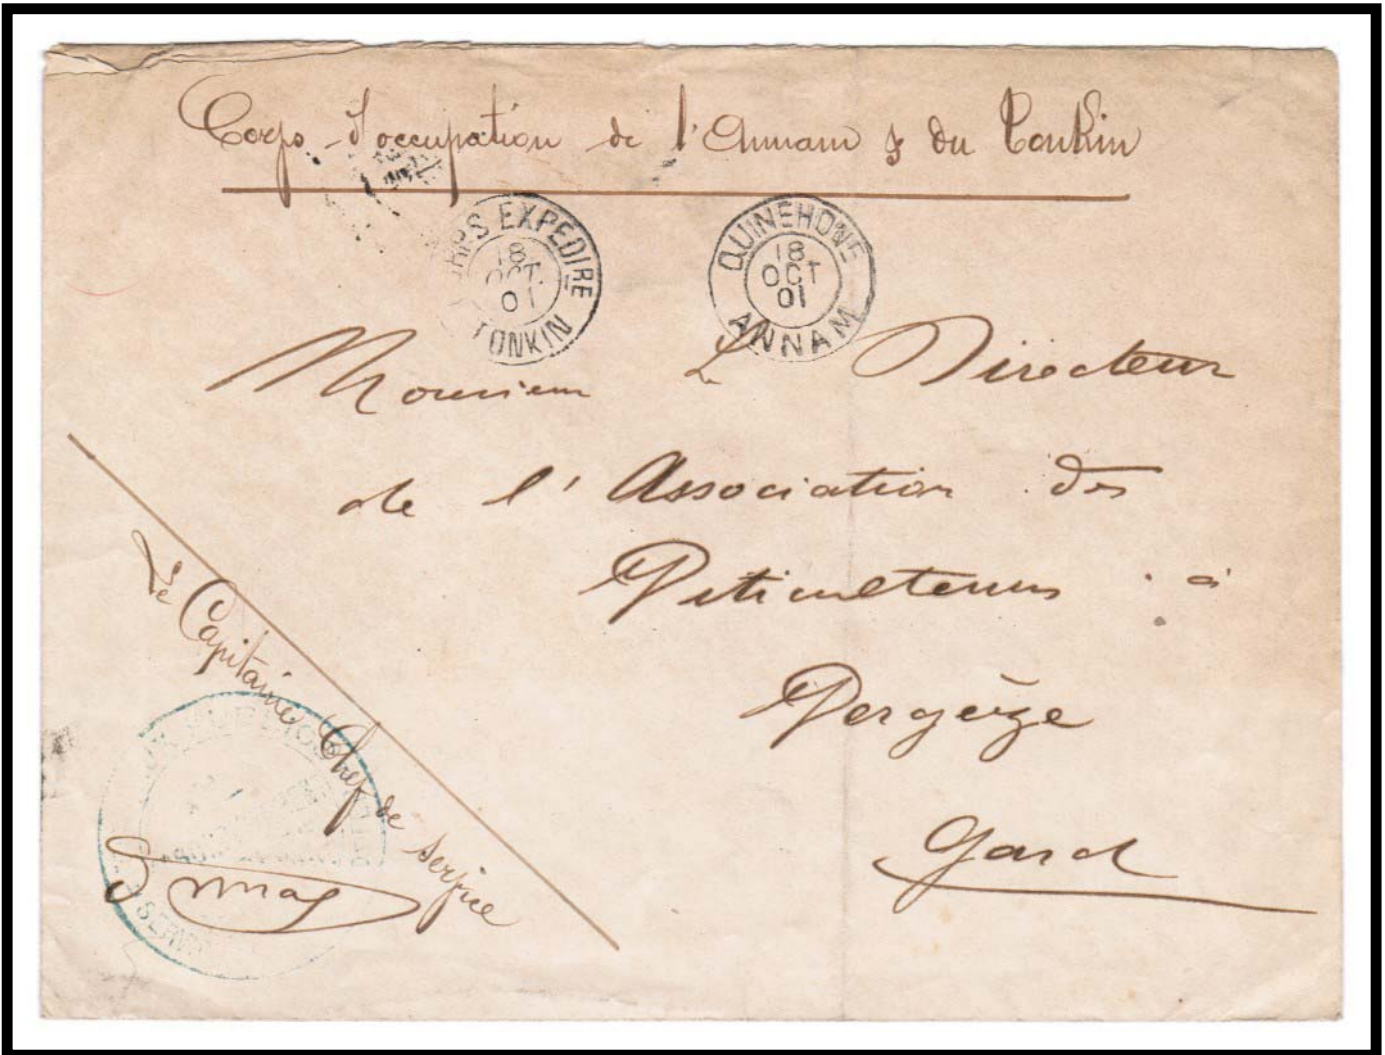 Corps d'occupation de l'Annam & du Tonkin
CORPS EXPEDIRE
18
OCT.
01
TONKIN
QUINEHONE
18
OCT
01
ANNAM
Monsieur Le Directeur
de l'Association des
Viticulteurs à
Vergèze
Gard
Le Capitaine Chef de Service